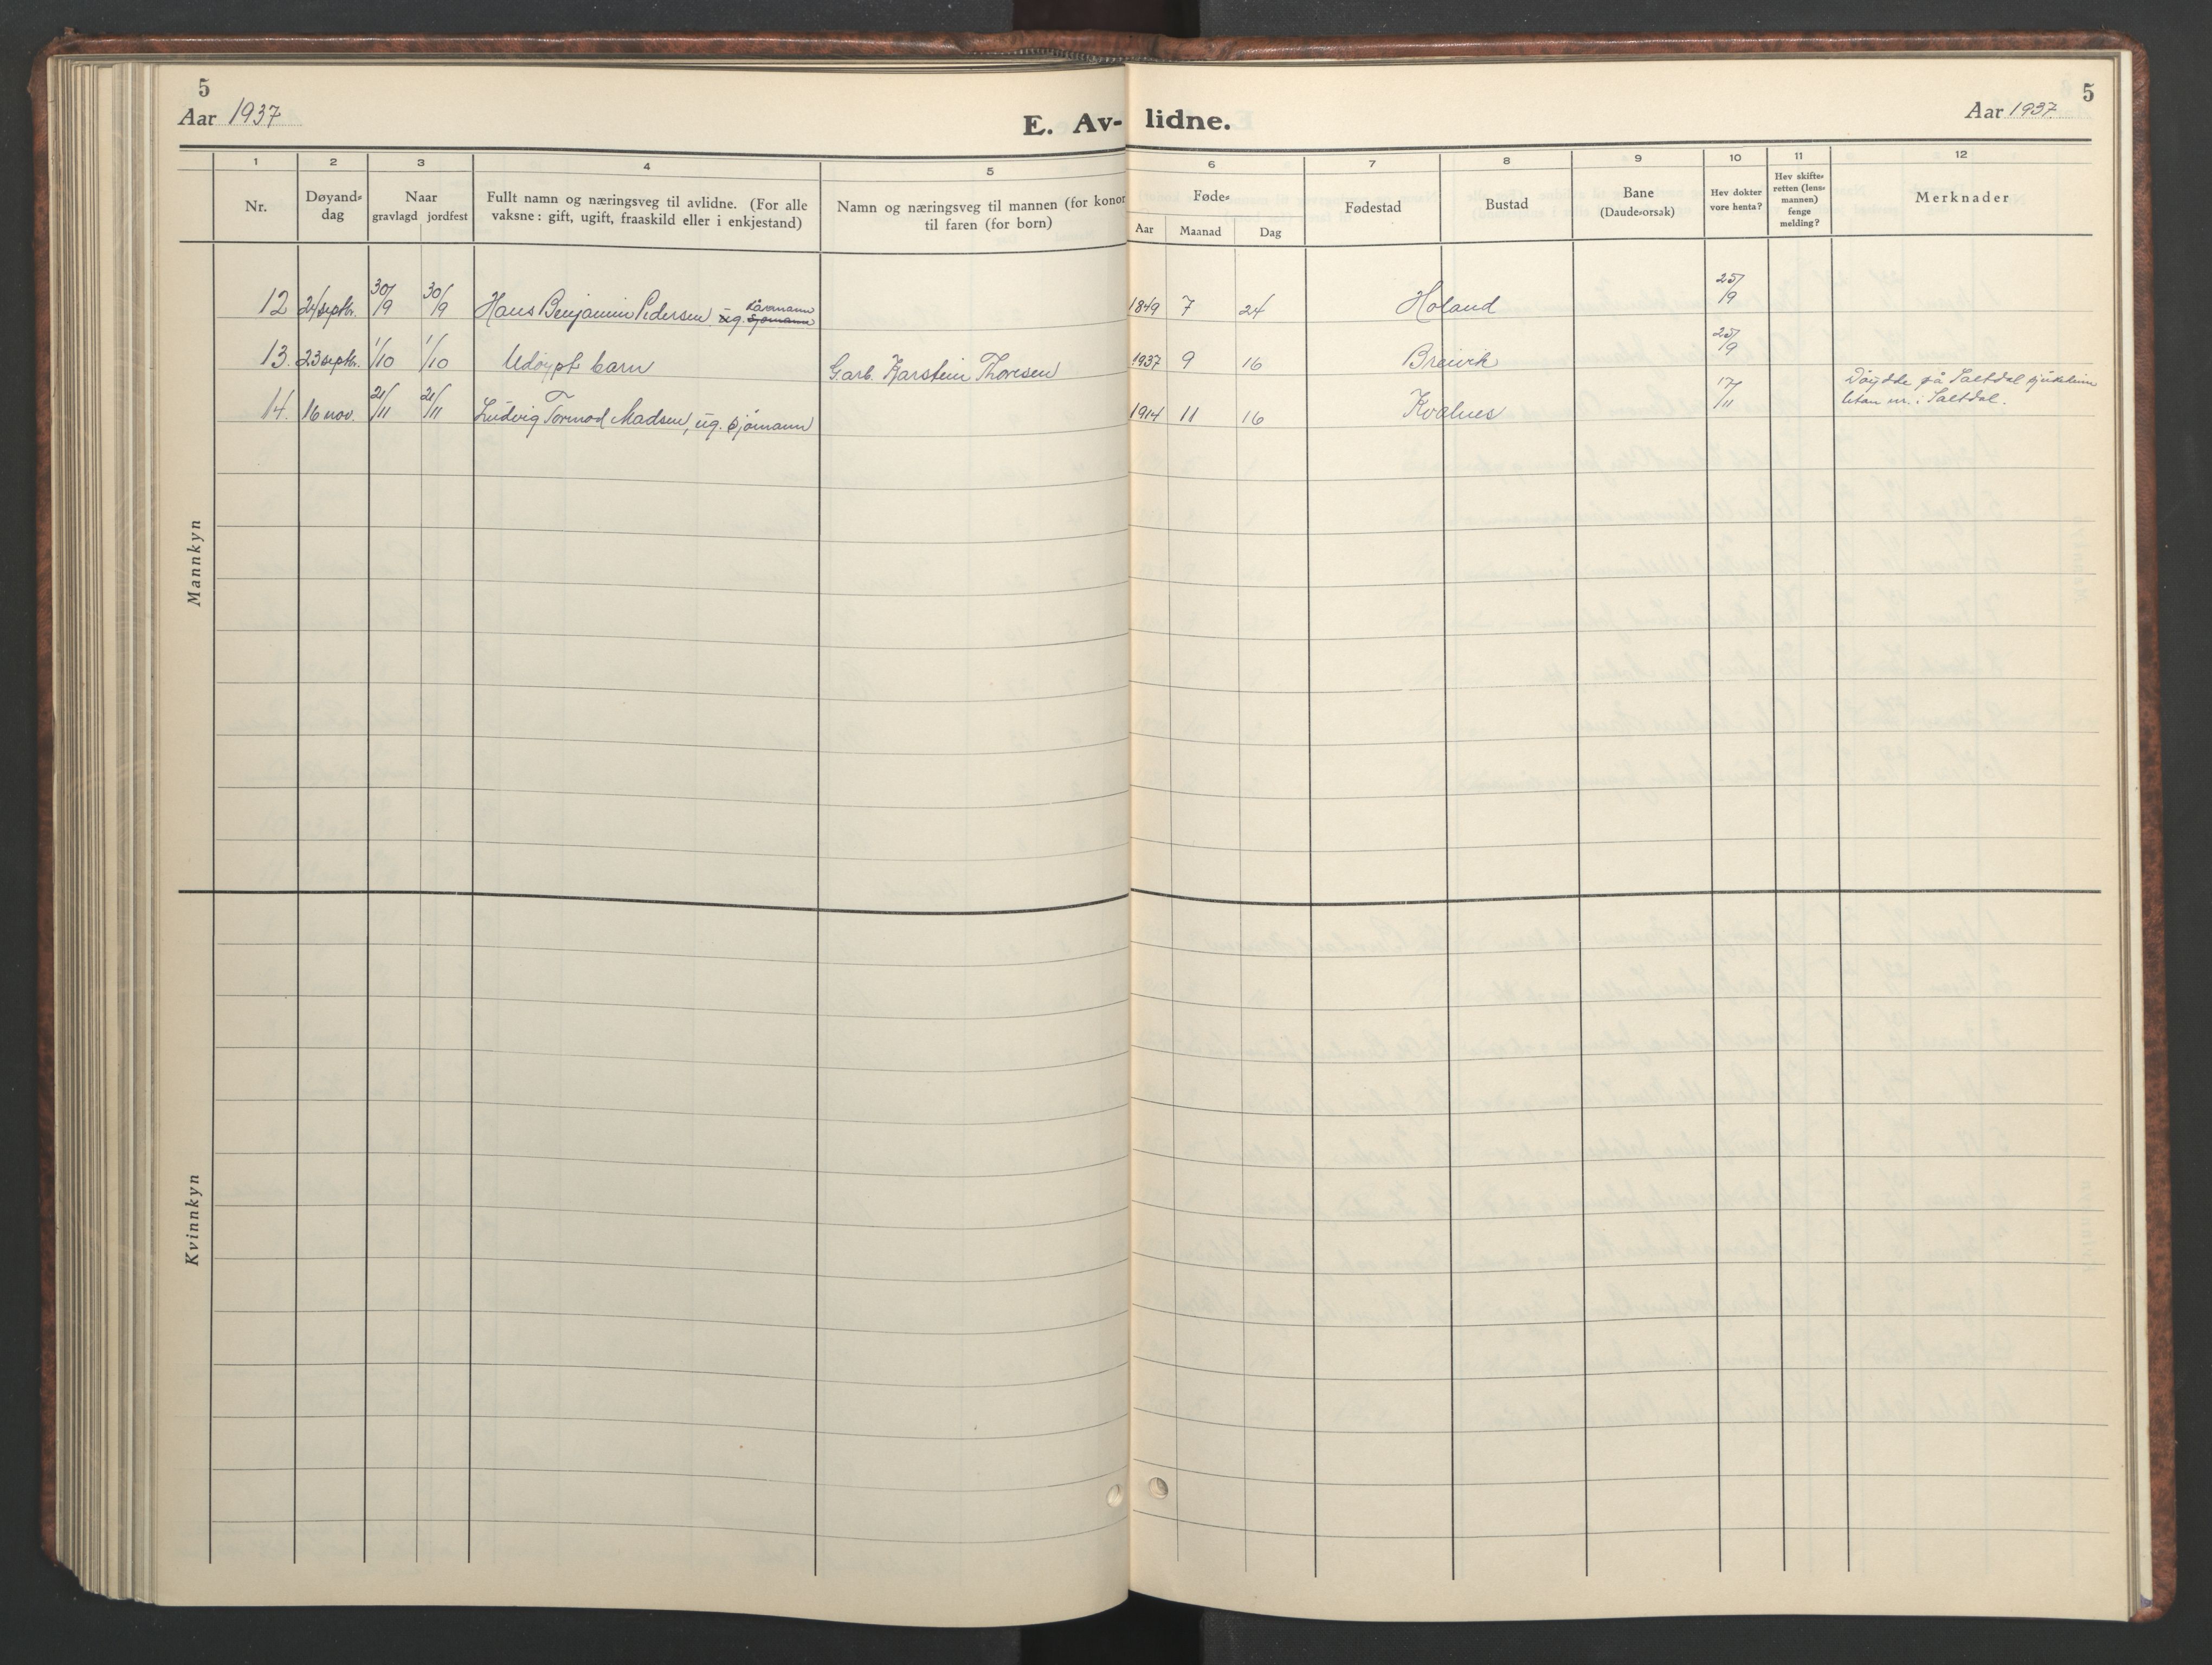 5
Aar 1937
E. Av-lidne.
Aar 1937
5
1 2 3 4 5 6 7 8 9 10 11 12
Nr.
Døyand-dag
Naar
gravlagd jordfest
Fullt namn og næringsveg til avlidne. (For alle
vaksne: gift, ugift, fraaskild eller i enkjestand)
Namn og næringsveg til mannen (for konor
til faren (for born)
Føde-
Aar Maanad Dag
Fødestad
Bustad
Bane
(Daude-orsak)
Hev dokter
vore henta?
Hev skifte-
retten (lens-
mannen)
fenge
melding?
Merknader
Mannkyn
12 24/septbr. 30/9 30/9 Hans Benjamin Pedersen ug. kårmann sjømann 1849 7 24 Holand 25/9
13. 23 septbr. 1/10 1/10 Udøypt barn Garb. Karstein Thoresen 1937 9 16 Breivik 25/9
14. 16 nov. 21/11 21/11 Ludvig Tormod Madsen, ug. sjømann 1914 11 16 Kvalnes 17/11 Døydde på Saltdal sjukeheim
utan nr. i Saltdal.
Kvinnkyn